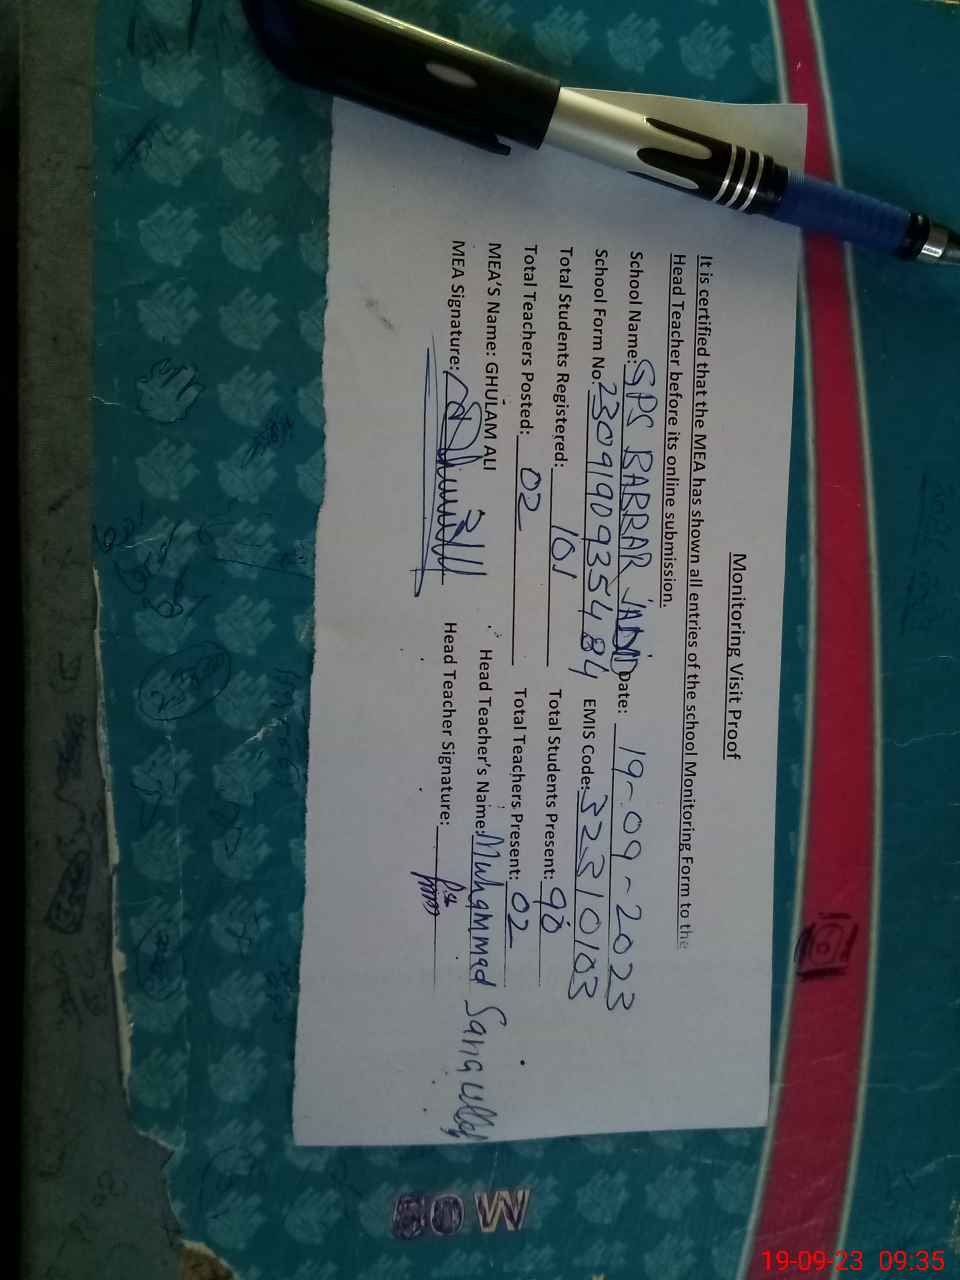 Monitoring Visit Proof
It is certified that the MEA has shown all entries of the school Monitoring Form to the
Head Teacher before its online submission.
School Name: GPS BARRAR JADID Date: 19-09-2023
School Form No: 23091909354484 EMIS Code: 32310103
Total Students Registered: 101 Total Students Present: 90
Total Teachers Posted: 02 Total Teachers Present: 02
MEA'S Name: GHULAM ALI Head Teacher's Name: Muhammad Sanaullah
MEA Signature: Head Teacher Signature:
19-09-23 09:35